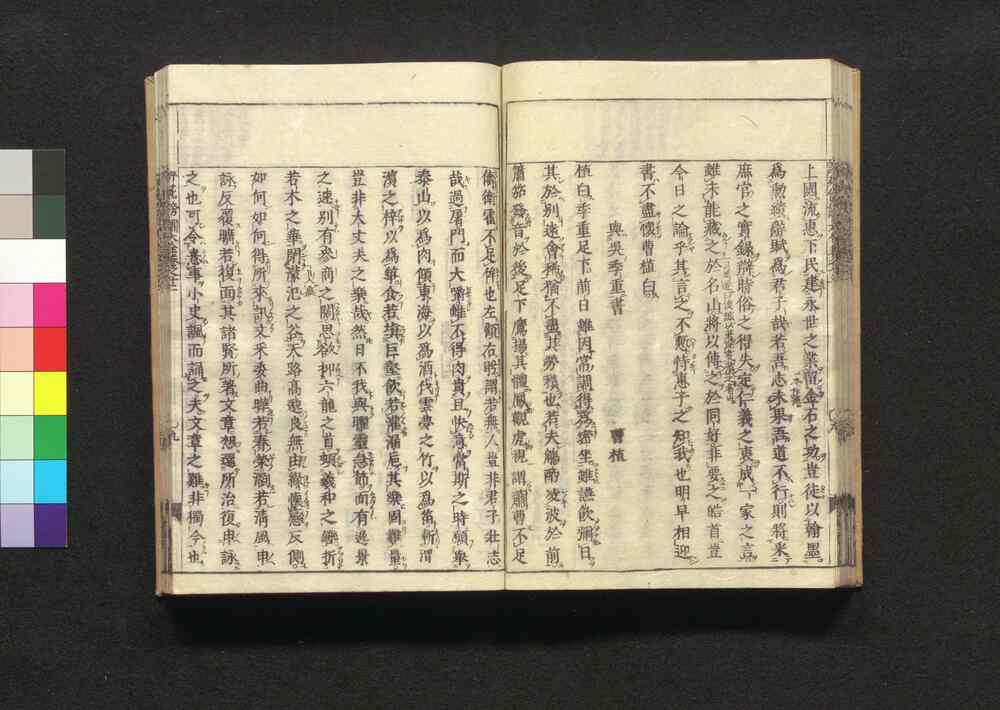 上國流惠下民建永世之業留金石之功豈徒以翰墨
爲勳績辭賦爲君子哉若吾志未果吾道不行則將采
庶官之實錄辯時俗之得失定仁義之衷成一家之言
雖未能藏之於名山將以傳之於同好非要之皓首豈
今日之論乎其言之不慙恃惠子之知我也明早相迎
書不盡懷曹植白
與吳季重書
曹植
植白季重足下前日雖因常調得爲密坐雖讌飲彌日
其於別遠會稀猶不盡其勞積也若夫觴酌凌波於前
簫笳發音於後足下鷹揚其體鳳觀虎視謂蕭曹不足
儔衛霍不足侔也左顧右眄謂若無人豈非君子壯志
哉過屠門而大嚼雖不得肉貴且快意當斯之時願舉
泰山以爲肉傾東海以爲酒伐雲夢之竹以爲笛斬泗
濱之梓以爲箏食若塡巨壑飲若灌漏巵其樂固難量
豈非大丈夫之樂哉然日不我與曜靈急節面有逸景
之速別有參商之闊思欲抑六龍之首頓羲和之轡折
若木之華閉濛汜之谷天路高邈良無由緣懷戀反側
如何如何得所來訊文采委曲曄若春榮瀏若清風申
詠反覆曠若復面其諸賢所著文章想還所治復申詠
之也可令憙事小史諷而誦之夫文章之難非獨今也
九